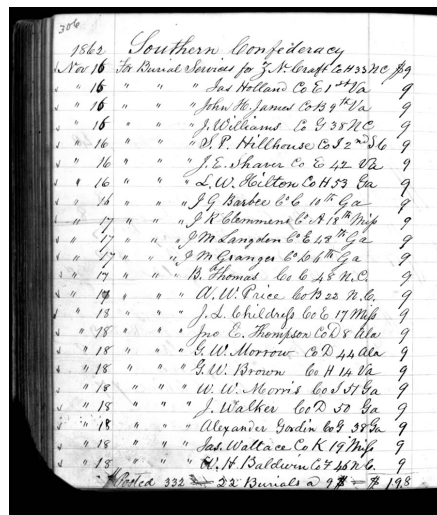 306
1862 Southern Confederacy
Nov 16 For Burial Services for Z. N. Craft Co H 33 N.C. $9
" 16 " " " Jas Holland Co E 1st Va 9
" 16 " " " John H. James Co B 9th Va 9
" 16 " " " J. Williams Co G 38 N.C. 9
" 16 " " " S. P. Hillhouse Co I 2nd 9
" 16 " " " J. E. Shaver Co E 42 Va 9
" 16 " " " L. W. Hilton Co H 53 Ga 9
" 16 " " " J G Barbee Co C 10th Ga 9
" 17 " " " J K Clemmens Co A 18th Miss 9
" 17 " " " J M Langdon Co E 48th Ga 9
" 17 " " " J M Granger Co C 6th Ga 9
" 17 " " " B. Thomas Co C 48 N.C. 9
" 17 " " " A. W. Price Co B 22 N.C. 9
" 18 " " " J. L. Childress Co E 17 Miss 9
" 18 " " " Jno E. Thompson Co D 8 Ala 9
" 18 " " " G. W. Morrow Co D 44 Ala 9
" 18 " " " G. W. Brown Co H 14 Va 9
" 18 " " " W. W. Morris Co I 51 Ga 9
" 18 " " " J. Walker Co D 50 Ga 9
" 18 " " " Alexander Gordin Co G 38 Ga 9
" 18 " " " Jas. Wallace Co K 19 Miss 9
" 18 " " " W. H. Baldwin Co F 46 N.C. 9
Posted 332 22 Burials @ 9 $ — $ 198